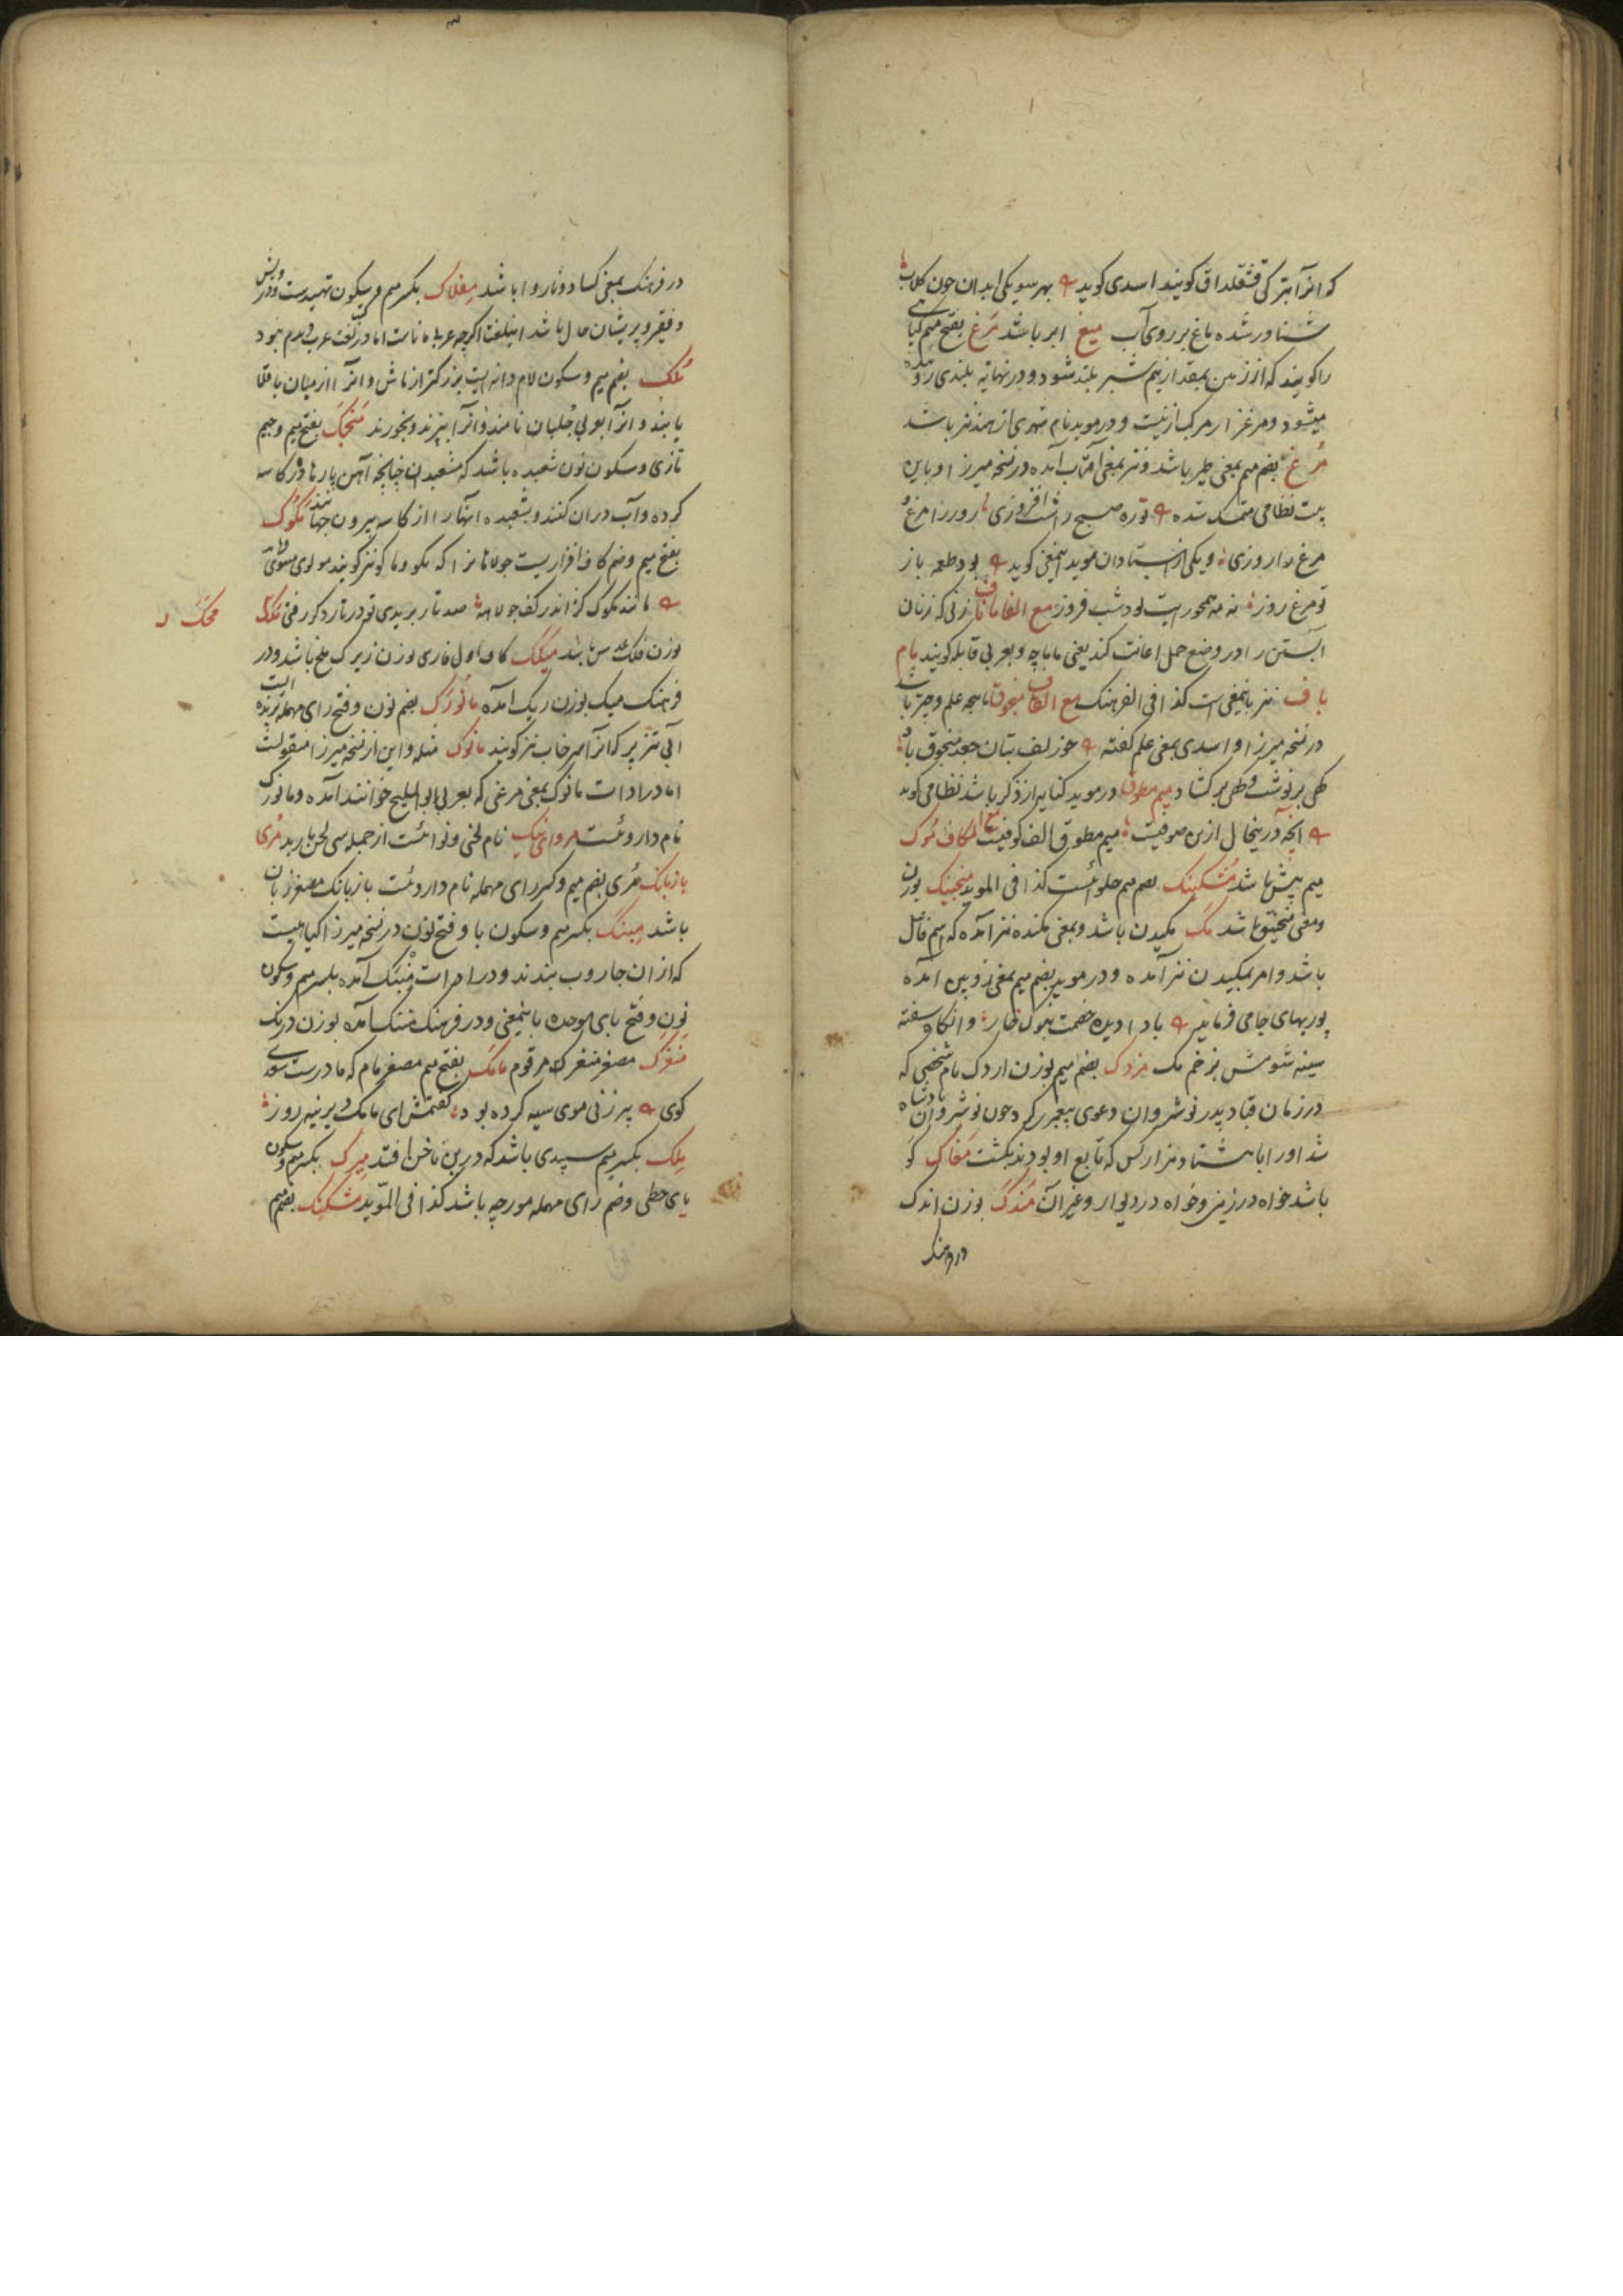 که انرا بترکی قشقلداق کویند اسدی کوید بهر سو یکی ابدان چون کلاب
شناور شده ماغ بر روی آب میغ ابر باشد مرغ بفتح میم کیاهی
را کویند که از زمین بمقدار نیم شبر بلند شود و در نهایه بلندی
میشود و مرغزار مرکب ازینست و در موید نام شهری از هند نیز باشد
مرغ بضم میم بمعنی طیر باشد و نیز بمعنی آفتاب آمده در نسخه میرزا و باین
بیت نظامی متمسک شده صبح را شب افروزی روز را مرغ
مرغ را روزی و یکی از استادان موید اینمعنی کوید بود طعمه باز
تو مرغ روز نه مه همخوریت بود شب فروز مع الفا ماناف زنی که زنان
آبستن را در وضع حمل اعانت کند یعنی ماماچه و بعربی قابله کویند مام
ناف نیز باینمعنی است کذا فی الفرهنک مع القاف منجوق ماهیچه علم و چتر باشد
در نسخه میرزا و اسدی بمعنی علم کفته خور زلف بتان جعد منجوق باد
کهی بر نوشت و کهی بر کشاد میم مطوق در موید کنایه از ذکر باشد نظامی کوید
آنچه درینحال ازین صوفیست میم مطوق الف کوفیست مع الکاف موک
میم پیش باشد مشکینک بضم میم حلوائست کذا فی الموید منجینک بوزن
ومعنی منجنیق باشد مک مکیدن باشد و بمعنی مکنده نیز آمده که اسم فاعل
باشد و امر بمکیدن نیز آمده و در موید بضم میم بمعنی زوبین آمده
پوربهای جامی فرماید بادا دیده خصمت وانکاه سفته
سینه شومش بزخم مک مزدک بضم میم بوزن اردک نام شخصی که
در زمان قباد پدر نوشروان دعوی پیغمبری کرد چون نوشروان پادشاه
شد او را با هشتاد هزار کس که تابع او بودند بکشت مغاک کو
باشد خواه در زمین و خواه در دیوار و غیر آن مندک بوزن اندک
در فرهنک
در فرهنک بمعنی کساد و ناروا باشد مفلاک بکسر میم و سکون تهیدست و درویش
و فقیر و پریشان حال باشد اینلغت اکرچه عربی ماناست اما در لغت عرب مرقوم نبود
ملک بضم میم و سکون لام دانه ایست بزرکتر از ماش و انرا از میان باقلا
یابند و انرا بعربی جلبان نامند و انرا بپزند و بخورند منجک بفتح میم و جیم
تازی و سکون نون شعبده باشد که مشعبدان چنانچه آهن پارها در کاسه
کرده و آب دران کنند و بشعبده انها را از کاسه بیرون جهانند مکوک
بفتح میم و ضم کاف افزاریست جولاهانرا که مکو و ماکو نیز کویند مولوی معنوی
مانند مکوک کژ اندر کف جولاهه صد تار بریدی تو در تار دکر رفتی
محک
بوزن فلک باشد میکک کاف اول فارسی بوزن زیرک ملخ باشد و در
فرهنک میک بوزن ریک آمده مانورک بضم نون و فتح رای مهمله پرنده ایست
آبی تیز پر که آنرا سرخاب نیز کویند مانوک مثله و این از نسخه میرزا منقولست
اما در ادات مانوک بمعنی مرغی که بعربی ابوالملیح خوانند آمده و مانورک
نام داروئست مروانیک نام لحنی و نوائست از جمله سی لحن باربد مری
بازبانک مری بضم میم و کسر رای مهمله نام داروئست بازبانک مصغر زبان
باشد مبنک بکسر میم و سکون با و فتح نون در نسخه میرزا کیاهیست
که از ان جاروب بندند و در ادات منبک آمده بکسر میم و سکون
نون و فتح بای موحده باینمعنی و در فرهنک آمده بوزن درنک
منغرک مصغر منغر که مرقوم مامک بفتح میم مصغر مام که مادرست سعدی
کوی پیرزنی موی سیه کرده بود کفتمش ای مامک دیرینه روز
ملک بکسر میم سپیدی باشد که در بن ناخن افتد میرک بکسر میم و سکون
یای حطی و ضم رای مهمله مورچه باشد کذا فی المؤید مشکنک بضم میم